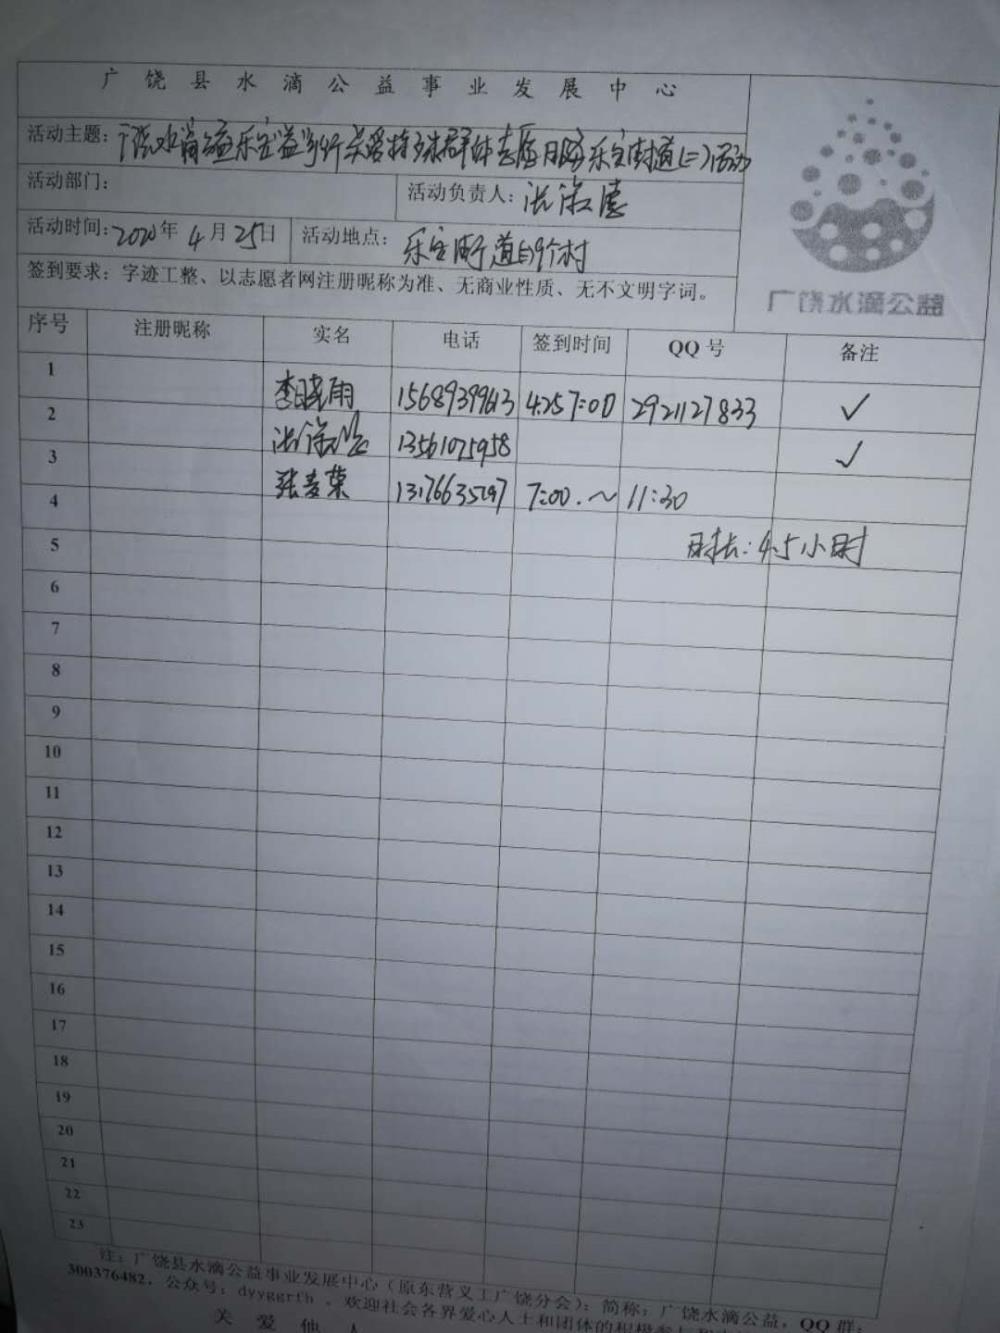 广饶县水滴公益事业发展中心
活动主题：广饶水滴公益乐安益家行关爱特殊群体志愿服务乐安街道(二)活动
活动部门：
活动负责人：
活动时间：2020年4月25日 活动地点：乐安街道的9个村
签到要求：字迹工整、以志愿者网注册昵称为准、无商业性质、无不文明字词。
广饶水滴公益
序号 注册昵称 实名 电话 签到时间 QQ 号 备注
1 李晓雨 15689399613 4.25 7:00 2921127833 ✓
2 13561075958 ✓
3 张麦荣 13176635297 7:00.～11:30
4
时长：4.5小时
5
6
7
8
9
10
11
12
13
14
15
16
17
18
19
20
21
22
23
注：广饶县水滴公益事业发展中心（原东营义工广饶分会）；简称：广饶水滴公益，QQ 群：
300376482，公众号：dyyggrfh 。欢迎社会各界爱心人士和团体的积极参与和
关 爱 他 人